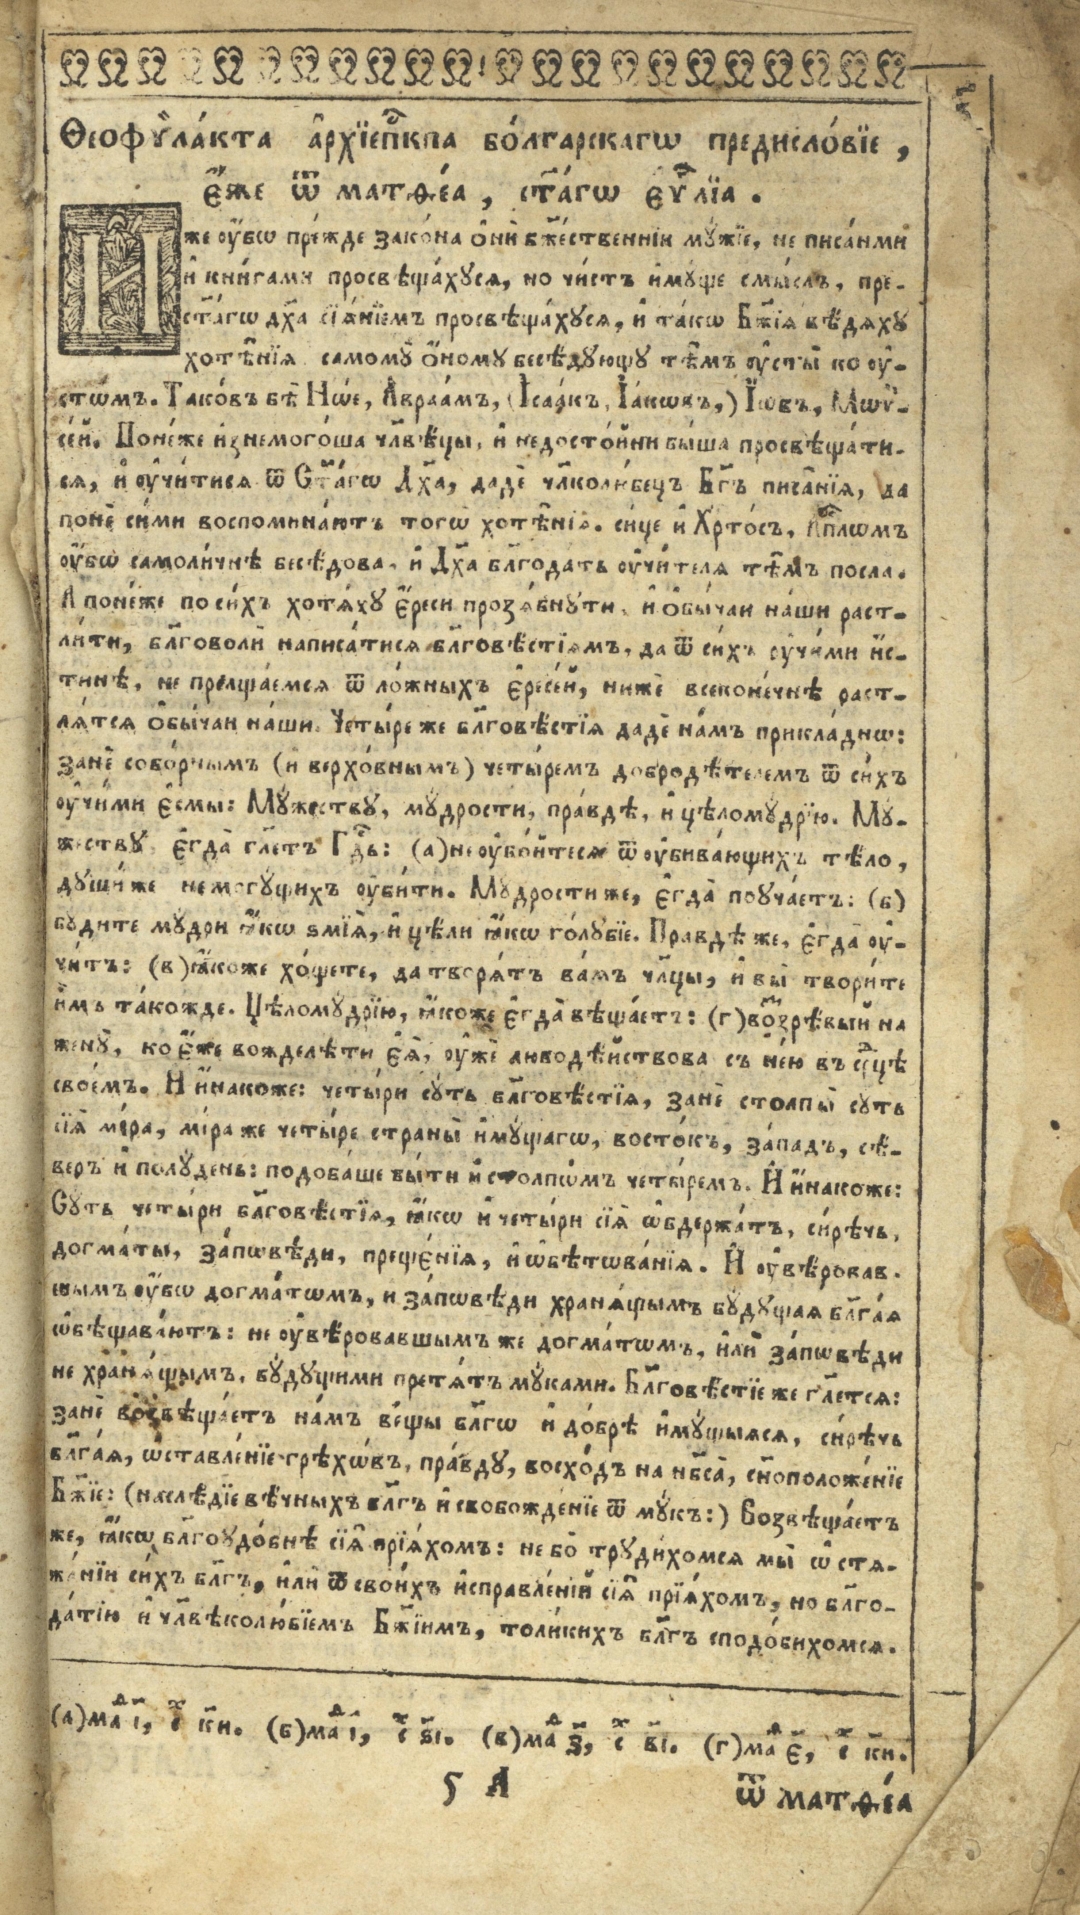 Ѳеофѵ́ла́кта а҆рхїеп҃кпа бо́лгарскагѡ предисло́вїе,
е҆́же ѿ матѳе́а, ст҃а́гѡ еѵ҃лїа.
Иже оу҆́бѡ пре́жде зако́на ѻ҆нѝ бж҃е́ственнїи мꙋ́жїе, не писа́нми
и҆ кни́гами просвѣща́хуся, но чи́стъ и҆мꙋ́ще смы́слъ, пре-
ст҃а́гѡ дх҃а сїѧ́нїемъ просвѣща́хуся, и҆ та́кѡ Бж҃їя вѣ́дяху
хотѣ̑нїя самомꙋ̀ ѻ҆́ному бесѣ́дующу тѣ̑мъ оу҆сты̀ ко оу҆-
стѡ́мъ. Тако́въ бѣ̀ Нѡ́е, А҆враа́мъ, (І҆саа́къ, І҆а́кѡвъ,) І҆́ѡвъ, Мѡѵ-
се́й. Поне́же и҆знемого́ша чл҃вѣ́цы, и҆ недосто́йни бы́ша просвѣща́ти-
ся, и҆ оу҆чи́тися ѿ Ст҃а́гѡ Дх҃а, дадѐ чл҃колю́бецъ Бг҃ъ писа̑нїя, да
понѐ си́ми воспомина́ютъ тогѡ̀ хотѣ̑нїя. си́це и҆ Хр҃то́съ, А҆п҃лѡмъ
оу҆́бѡ самоли́чнѣ бесѣ́дова, и҆ Дх҃а бл҃года́ть оу҆чи́теля тѣ̑мъ посла.
А поне́же по си́хъ хотя́ху е҆́реси прозя́бнути, и҆ ѻ҆бы́чаи на́ши раст-
ли́ти, бл҃говолѝ написа́тися бл҃говѣ́стїямъ, да ѿ си́хъ оу҆чи́ми и҆́с-
тинѣ, не прелща́емся ѿ ло́жныхъ е҆ресе́й, нижѐ всеконе́чнѣ раст-
ля́тся ѻ҆бы́чаи на́ши. Четы́ре же бл҃говѣ́стїя дадѐ на́мъ прикла́днѡ:
занѐ собо́рнымъ (и҆ верхо́внымъ) четы́ремъ добродѣ́телемъ ѿ си́хъ
оу҆чи́ми е҆смы̀: Мꙋ́жеству, мꙋ́дрости, пра́вдѣ, и҆ цѣломꙋ́дрїю. Мꙋ́-
жеству, е҆гда̀ гл҃етъ Гд҃ь: (а) не оу҆бо́йтеся ѿ оу҆бива́ющихъ тѣ́ло,
дꙋши́ же не могꙋ́щихъ оу҆би́ти. Мꙋ́дрости же, е҆гда̀ поуча́етъ: (б)
бꙋ́дите мꙋ́дри ꙗ҆́кѡ ѕмїя̀, и҆ цѣ́ли ꙗ҆́кѡ го́лубїе. Правдѣ́ же, е҆гда̀ оу҆-
чи́тъ: (в) ꙗ҆́коже хо́щете, да творя́тъ ва́мъ чл҃цы, и҆ вы̀ твори́те
и҆̀мъ та́кожде. Цѣломꙋ́дрїю, ꙗ҆́коже е҆гда̀ вѣща́етъ: (г) во̏зрѣ́вый на
женꙋ̀, ко е҆́же вожделѣ́ти е҆я̀, оу҆жѐ любодѣ́йствова съ не́ю въ ср҃дцѣ
свое́мъ. И и҆́накоже: четы́ри сꙋ́ть бл҃говѣ́стїя, занѐ столпы̀ сꙋ́ть
сїя̀ мі́ра, мі́ра же четы́ре страны̀ и҆мꙋ́щагѡ, восто́къ, за́падъ, сѣ́-
веръ и҆ полꙋ́день: подоба́ше бы́ти и҆ столпѡ́мъ четы́ремъ. И҆ и҆́накоже:
Сꙋ́ть четы́ри бл҃говѣ́стїя, ꙗ҆́кѡ и҆ четы́ри сїя̀ ѡ҆бдержа́тъ, си́рѣчь,
догма́ты, за́пѡвѣди, преще́нїя, и҆ ѡ҆бѣтѡва́нїя. И҆ оу҆вѣ́ровав-
шымъ оу҆́бѡ догма́тѡмъ, и҆ за́пѡвѣди храня́щымъ бꙋ́дущая бл҃га́я
ѡ҆бѣщава́ютъ: не оу҆вѣ́ровавшымъ же догма́тѡмъ, и҆лѝ за́пѡвѣди
не храня́щымъ, бꙋ́дущими претя́тъ мꙋ́ками. Бл҃говѣ́стїе же гл҃ется:
занѐ возвѣща́етъ на́мъ ве́щы бл҃гѡ и҆ до́брѣ и҆мꙋ́щыяся, си́рѣчь
бл҃га́я, ѡ҆ставле́нїе грѣхѡ́въ, пра́вду, восхо́дъ на нб҃са̀, сн҃оположе́нїе
Бж҃їе: (наслѣ́дїе вѣ́чныхъ бл҃гъ и҆ свобожде́нїе ѿ мꙋ́къ:) Возвѣща́етъ
же, ꙗ҆́кѡ бл҃гоудо́бнѣ сїя̑ прїя́хомъ: не бо̀ труди́хомся мы̀ ѡ҆ стя-
жа́нїи си́хъ бл҃гъ, и҆лѝ ѿ свои́хъ и҆справле́нїй сїя̑ прїя́хомъ, но бл҃го-
да́тїю и҆ чл҃вѣколю́бїемъ Бж҃їимъ, толи́кихъ бл҃гъ сподо́бихомся.
(а) маⷣ і҃, сⷯ к҃и. (б) маⷣ і҃, сⷯ ѕ҃і. (в) маⷣ з҃, сⷯ в҃і. (г) маⷣ е҃, сⷯ к҃и.
ҕ А
ѿ матѳе́а